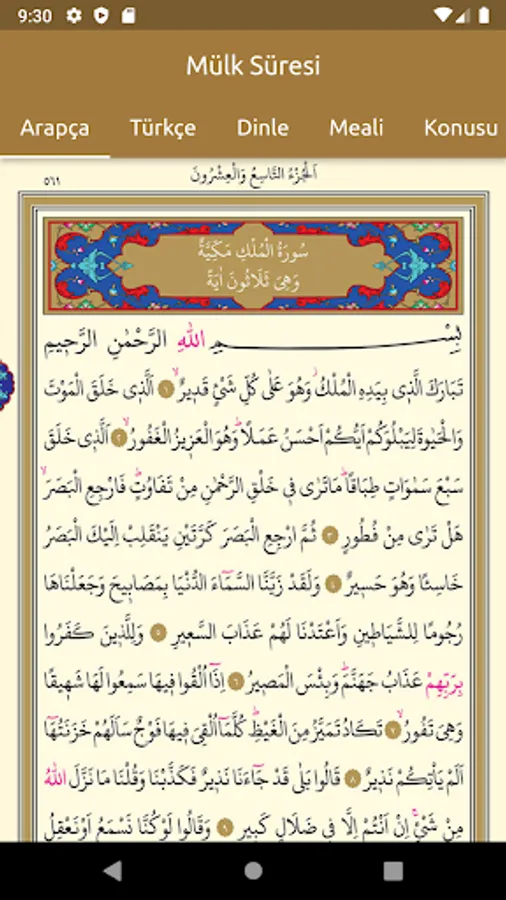 9:30
Mülk Sûresi
Arapça Türkçe Dinle Meali Konusu
اَلْجُزْءُ التَّاسِعُ وَالْعِشْرُونَ ٥٦١
سُورَةُ الْمُلْكِ مَكِّيَّةٌ
وَهِيَ ثَلَاثُونَ اٰيَةً
بِسْمِ اللّٰهِ الرَّحْمٰنِ الرَّحٖيمِ
تَبَارَكَ الَّذٖى بِيَدِهِ الْمُلْكُ وَهُوَ عَلٰى كُلِّ شَىْءٍ قَدٖيرٌۙ ١ اَلَّذٖى خَلَقَ الْمَوْتَ
وَالْحَيٰوةَ لِيَبْلُوَكُمْ اَيُّكُمْ اَحْسَنُ عَمَلًاؕ وَهُوَ الْعَزٖيزُ الْغَفُورُۙ ٢ اَلَّذٖى خَلَقَ
سَبْعَ سَمٰوَاتٍ طِبَاقًاؕ مَا تَرٰى فٖى خَلْقِ الرَّحْمٰنِ مِنْ تَفَاوُتٍؕ فَارْجِعِ الْبَصَرَۙ
هَلْ تَرٰى مِنْ فُطُورٍ ٣ ثُمَّ ارْجِعِ الْبَصَرَ كَرَّتَيْنِ يَنْقَلِبْ اِلَيْكَ الْبَصَرُ
خَاسِئًا وَهُوَ حَسٖيرٌ ٤ وَلَقَدْ زَيَّنَّا السَّمَٓاءَ الدُّنْيَا بِمَصَابٖيحَ وَجَعَلْنَاهَا
رُجُومًا لِلشَّيَاطٖينِ وَاَعْتَدْنَا لَهُمْ عَذَابَ السَّعٖيرِ ٥ وَلِلَّذٖينَ كَفَرُوا
بِرَبِّهِمْ عَذَابُ جَهَنَّمَؕ وَبِئْسَ الْمَصٖيرُ ٦ اِذَٓا اُلْقُوا فٖيهَا سَمِعُوا لَهَا شَهٖيقًا
وَهِىَ تَفُورُۙ ٧ تَكَادُ تَمَيَّزُ مِنَ الْغَيْظِؕ كُلَّمَٓا اُلْقِىَ فٖيهَا فَوْجٌ سَاَلَهُمْ خَزَنَتُهَٓا
اَلَمْ يَاْتِكُمْ نَذٖيرٌ ٨ قَالُوا بَلٰى قَدْ جَٓاءَنَا نَذٖيرٌ فَكَذَّبْنَا وَقُلْنَا مَا نَزَّلَ اللّٰهُ
مِنْ شَىْءٍۚ اِنْ اَنْتُمْ اِلَّا فٖى ضَلَالٍ كَبٖيرٍ ٩ وَقَالُوا لَوْ كُنَّا نَسْمَعُ اَوْ نَعْقِلُ